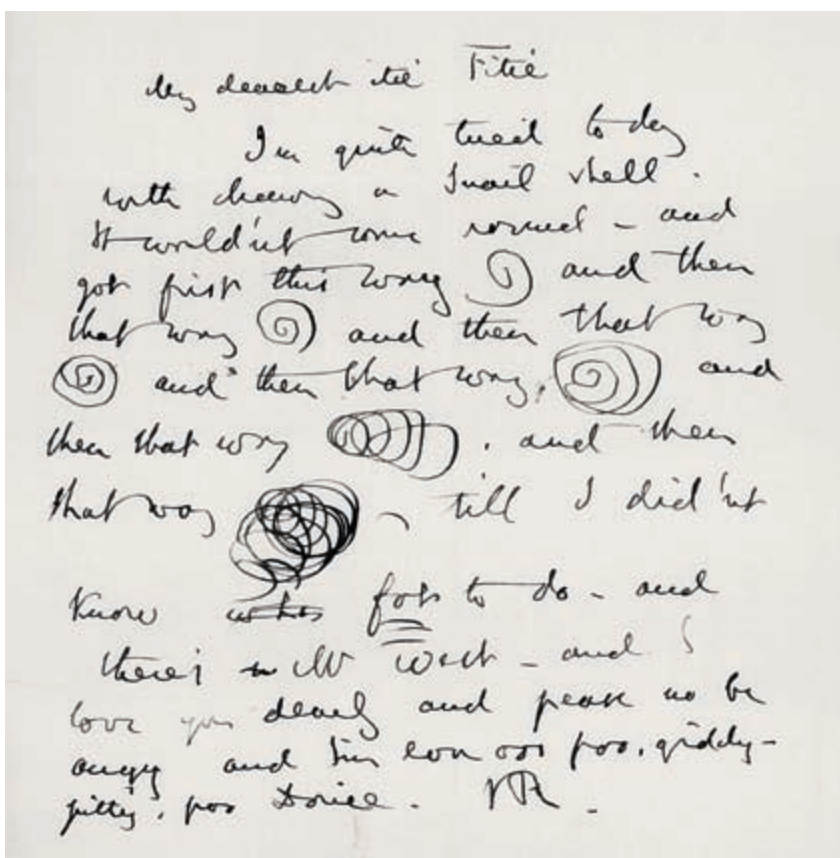 My dearest
I'm quite tired to day
with drawing a Snail shell.
It would'nt come round – and
got first this way and then
that way and then that way
and then that way, and
then that way . and then
that way – till I did'nt
Know fot to do – and
there's – and I
love you dearly and pease no be
angy and I'm oos poo. giddy–
poo Donie. JR –